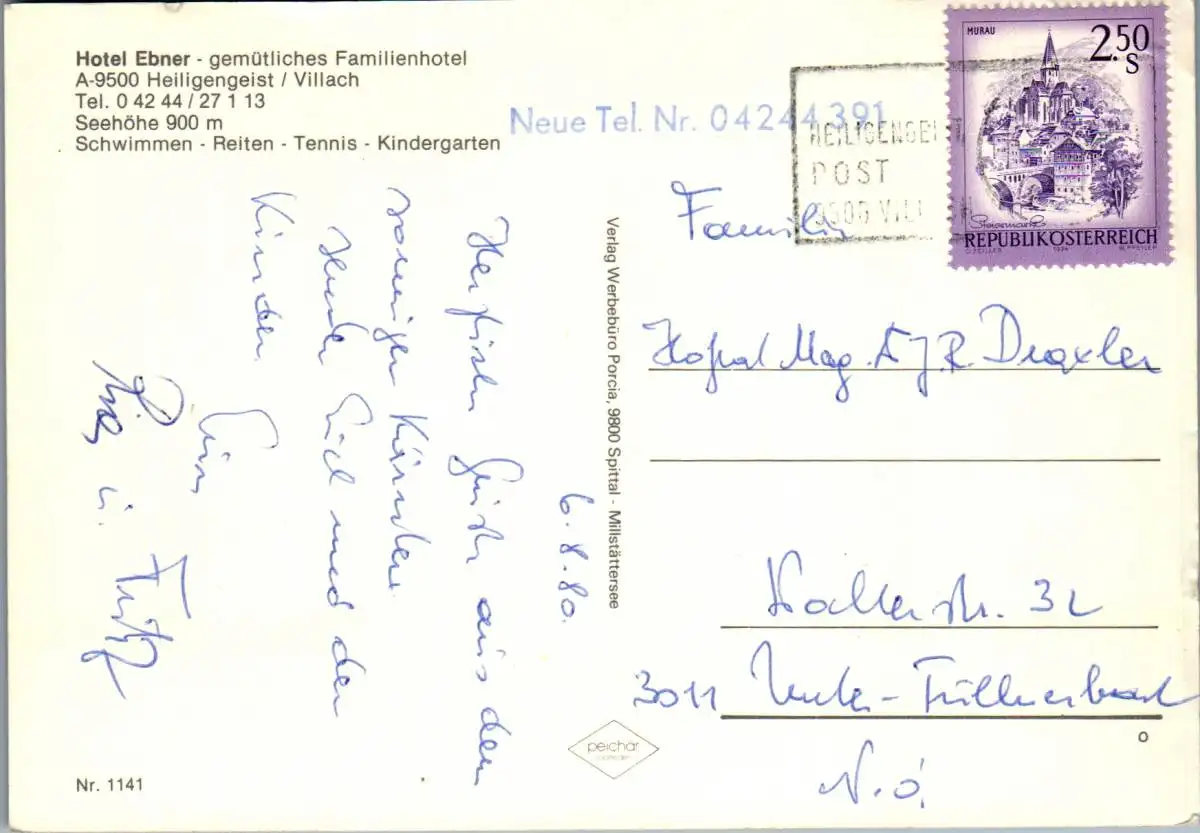 Hotel Ebner - gemütliches Familienhotel
A-9500 Heiligengeist / Villach
Tel. 0 42 44 / 27 1 13
Seehöhe 900 m
Schwimmen - Reiten - Tennis - Kindergarten
Neue Tel. Nr. 04244 391
HEILIGENGEIST
POST
9500 VILL
MURAU
2.50
S
Steiermark
REPUBLIK ÖSTERREICH
1974
6.8.80.
Herzliche Grüße aus dem
sonnigen Kärnten
sendet Euch und den
Kindern
Eure
u. Fritz
Verlag Werbebüro Porcia, 9800 Spittal - Millstättersee
Familie
Hofrat Mag. J. R. Draxler
32
3011 Unter-Tullnerbach
N.Ö.
peichär
Nr. 1141
o